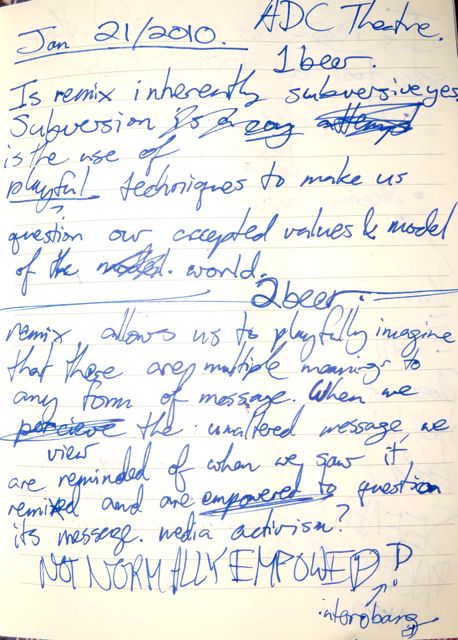 Jan 21/2010. ADC Theatre.
1 beer.
Is remix inherently subversive yes.
Subversion is a
is the use of
playful techniques to make us
question our accepted values & model
of the world.
2 beer.
remix allows us to playfully imagine
that there are multiple meanings to
any form of message. When we
percieve the unaltered message, we
view
are reminded of when we saw it
remixed and are empowered to question
its message. media activism?
NOT NORMALLY EMPOWERED
interobang